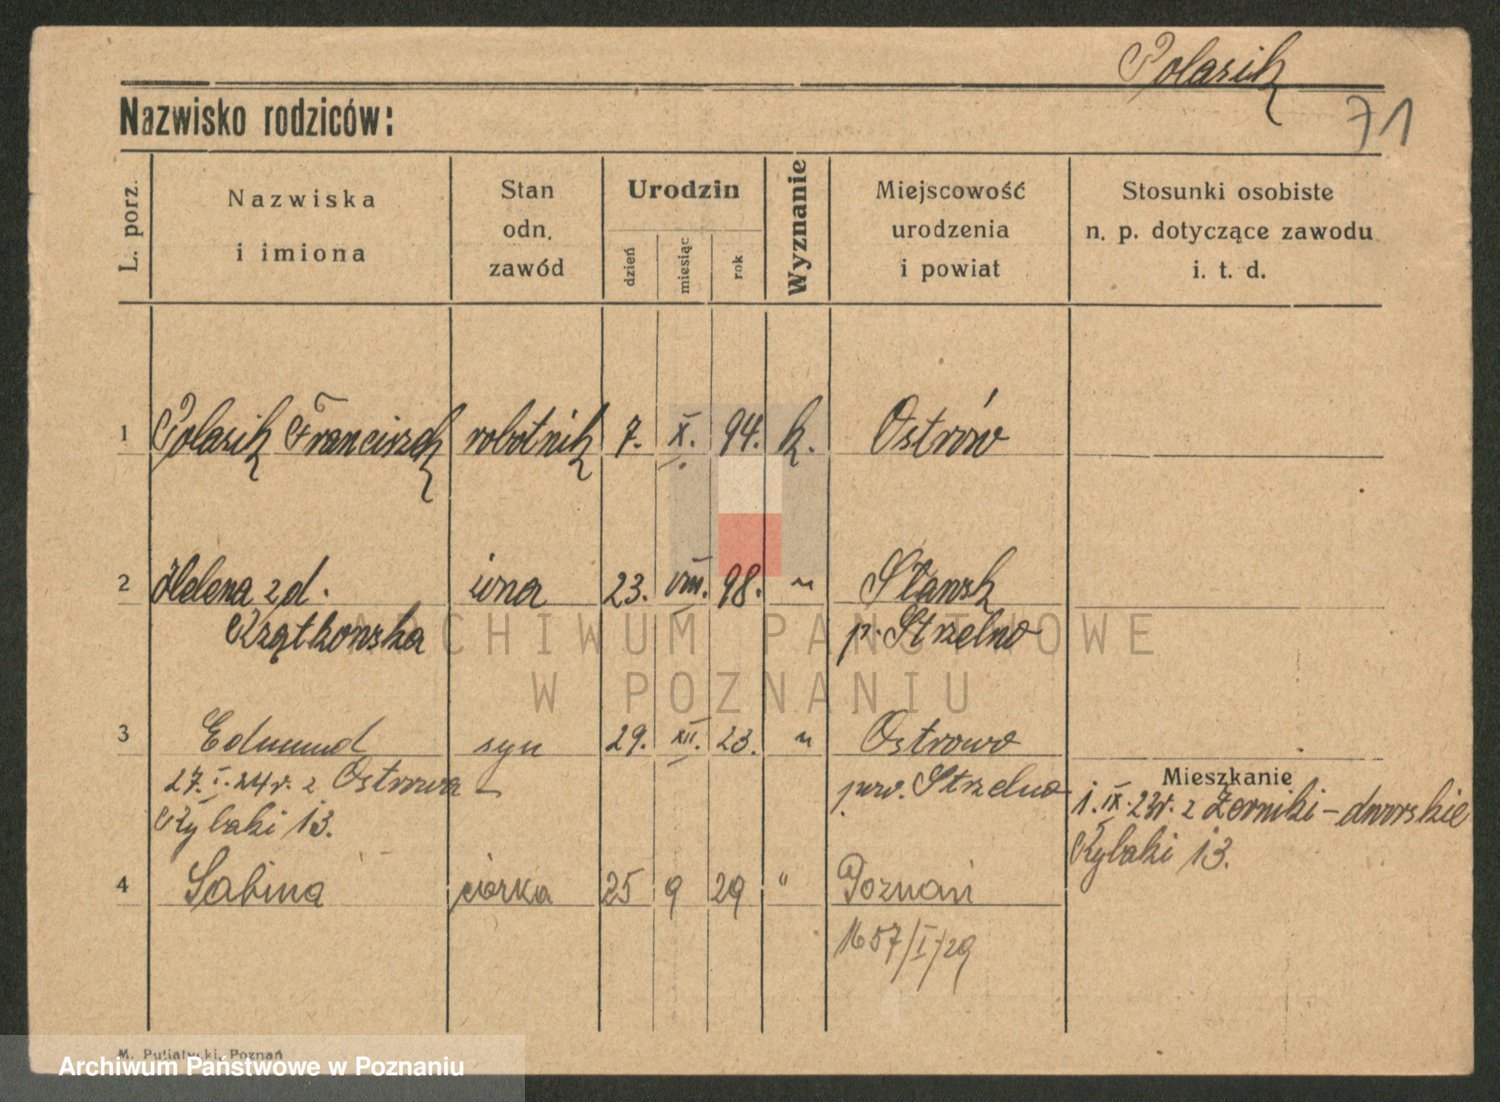 Polasik
71
Nazwisko rodziców:
L. porz.
Nazwiska
i imiona
Stan
odn.
zawód
Urodzin
dzień
miesiąc
rok
Wyznanie
Miejscowość
urodzenia
i powiat
Stosunki osobiste
n. p. dotyczące zawodu
i. t. d.
1 Polasik Franciszek robotnik 7. X. 94. k. Ostrów
2 Helena z d. żona 23. VIII. 98. " Sławsk
Krzątkowska p. Strzelno
3 Edmund syn 29. XII. 23. " Ostrowo
27. I. 24 r. z Ostrowa pow. Strzelno
Rybaki 13.
Mieszkanie
1. IX. 23 r. z Żerniki-dworskie
Rybaki 13.
4 Sabina córka 25 9 29 " Poznań
1657/I/29
M. Putiatycki, Poznań
ARCHIWUM PAŃSTWOWE
W POZNANIU
Archiwum Państwowe w Poznaniu